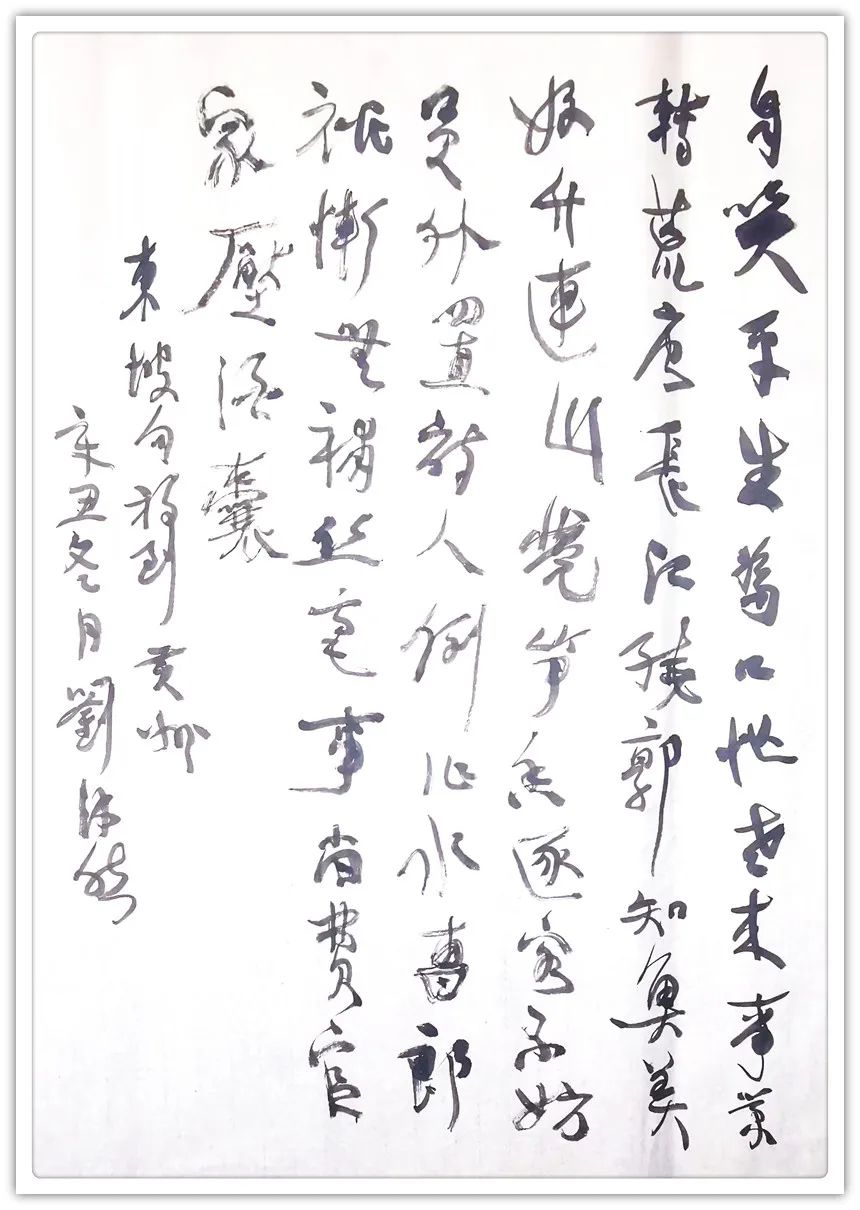 自笑平生為口忙老来事業
轉荒唐長江繞郭知魚美
好竹連山覺筍香逐客不妨
員外置詩人例作水曹郎
祗慚無補丝毫事尚費官
家壓酒囊
東坡句初到黄州
辛丑冬月劉然